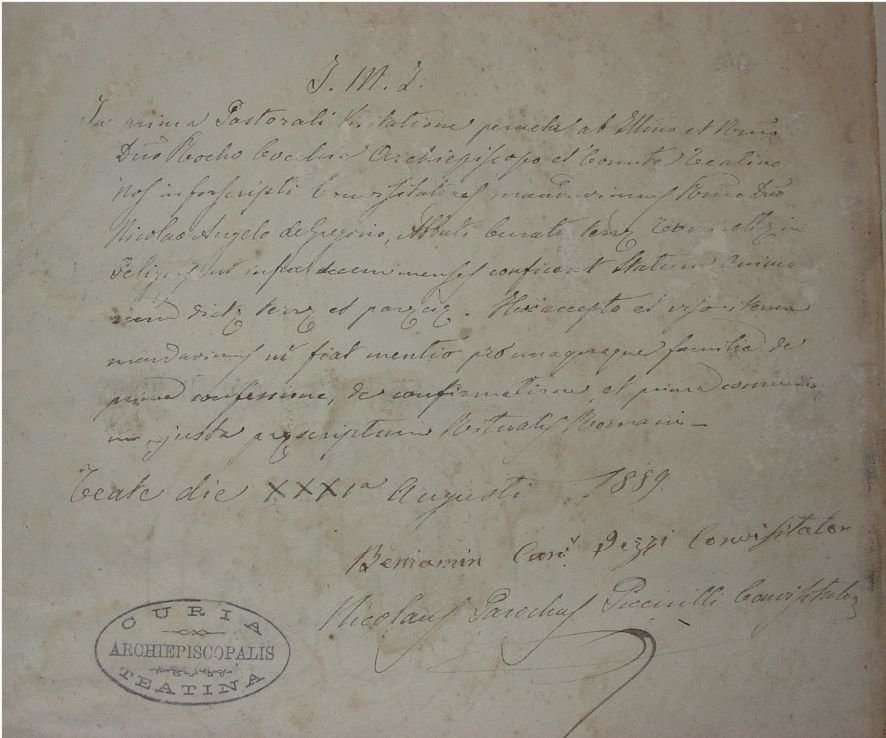 J. M. J.
In prima Pastorali Visitatione peracta ab Illmo et Rmo
Dno Rocho Cocchia Archiepiscopo et Comite Teatino
Nos infrascripti Convisitatores mandavimus Rmo Dno
Nicolao Angelo de Gregorio, Abbati Curato terrę in
Peligns ut infra mensem conficeret Statum Anima
rum dictę terrę et paręcię. Hoc accepto et viso iterum
mandavimus ut fiat mentio pro unaquaque familia de
prima confessione, de confirmatione, et prima communio
ne juxta pręscriptum Ritualis Romani —
Teate die XXXIa Augusti 1889.
Beniamin Can.º Pezzi Convisitator
Nicolaus Parochus Piccirilli Convisitator
CURIA
ARCHIEPISCOPALIS
TEATINA